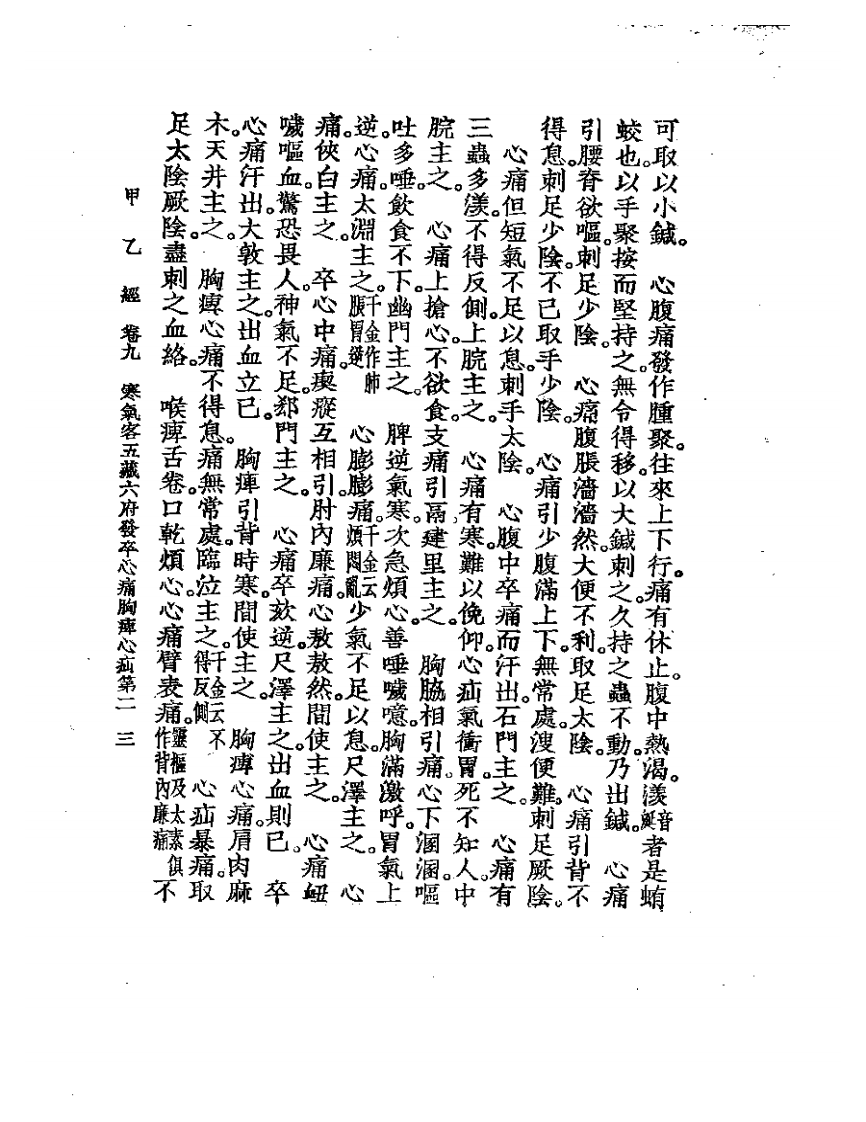 可取以小鍼。　心腹痛發作腫聚。往來上下行。痛有休止。腹中熱渴。漾音涎者是蛕
蛟也。以手聚按而堅持之。無令得移。以大鍼刺之。久持之蟲不動。乃出鍼。　心痛
引腰脊欲嘔。刺足少陰。　心痛腹脹濇濇然。大便不利。取足太陰。　心痛引背不
得息。刺足少陰。不已取手少陰。　心痛引少腹滿上下。無常處。溲便難。刺足厥陰。
心痛但短氣不足以息。刺手太陰。　心腹中卒痛而汗出。石門主之。　心痛有
三蟲多漾。不得反側。上脘主之。　心痛有寒。難以俛仰。心疝氣衝胃。死不知人。中
脘主之。　心痛上搶心。不欲食。支痛引鬲。建里主之。　胸脇相引痛。心下溷溷。嘔
吐多唾。飲食不下。幽門主之。　脾逆氣寒。次急煩心。善唾噦噫。胸滿激呼。胃氣上
逆。心痛。太淵主之。千金作肺脹胃逆　心膨膨痛。千金云煩悶亂少氣不足以息。尺澤主之。　心
痛。俠白主之。　卒心中痛。瘈瘲互相引。肘內廉痛。心敖敖然。間使主之。　心痛衄
噦嘔血。驚恐畏人。神氣不足。郄門主之。　心痛卒欬逆。尺澤主之。出血則已。　卒
心痛汗出。大敦主之。出血立已。　胸痺引背時寒。間使主之。　胸痺心痛。肩肉麻
木。天井主之。　胸痺心痛不得息。痛無常處。臨泣主之。千金云不得反側　心疝暴痛。取
足太陰厥陰。盡刺之血絡。　喉痺舌卷。口乾煩心。心痛臂表痛。靈樞及太素俱作背內廉痛不
甲乙經　卷九　寒氣客五藏六府發卒心痛胸痺心疝第二　三